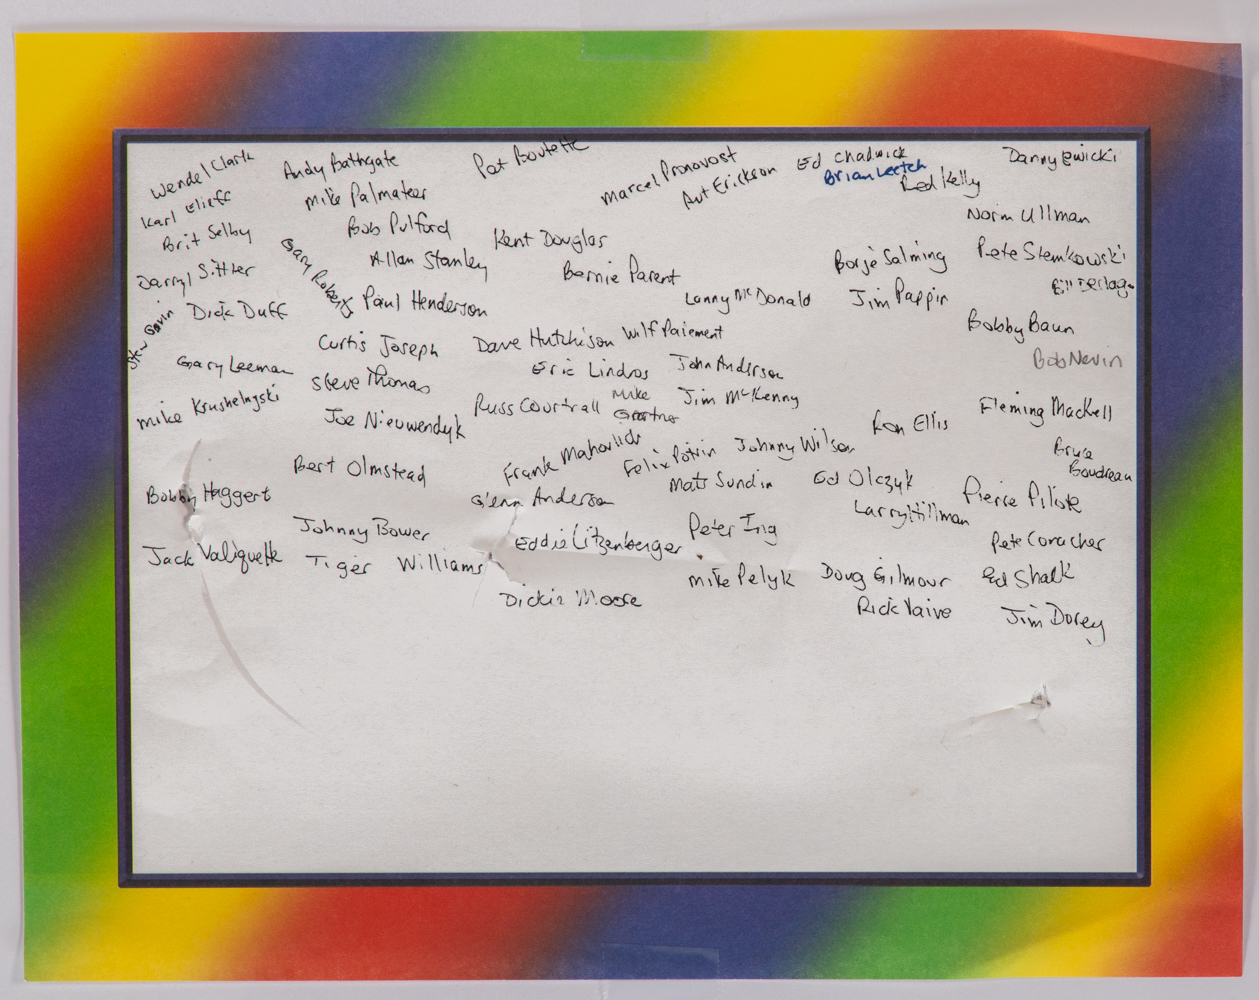 Wendel Clark
Andy Bathgate
Pat Boutette
Marcel Pronovost
Ed Chadwick
Danny Lewicki
Karl Elieff
Mike Palmateer
Aut Erickson
Brian Leetch
Red Kelly
Brit Selby
Bob Pulford
Kent Douglas
Norm Ullman
Darryl Sittler
Gary Roberts
Allan Stanley
Bernie Parent
Borje Salming
Pete Stemkowski
Stew Gavin
Dick Duff
Paul Henderson
Lanny McDonald
Jim Pappin
Bill Derlago
Curtis Joseph
Dave Hutchison
Wilf Paiement
Bobby Baun
Gary Leeman
Steve Thomas
Eric Lindros
John Anderson
Bob Nevin
Mike Krushelnyski
Joe Nieuwendyk
Russ Courtnall
Mike
Gartner
Jim McKenny
Ron Ellis
Fleming Mackell
Bert Olmstead
Frank Mahovlich
Felix Potvin
Johnny Wilson
Bruce
Boudreau
Bobby Haggert
Glenn Anderson
Mats Sundin
Ed Olczyk
Pierre Pilote
Johnny Bower
Eddie Litzenberger
Peter Ing
Larry Hillman
Pete Conacher
Jack Valiquette
Tiger Williams
Dickie Moore
Mike Pelyk
Doug Gilmour
Ed Shack
Rick Vaive
Jim Dorey